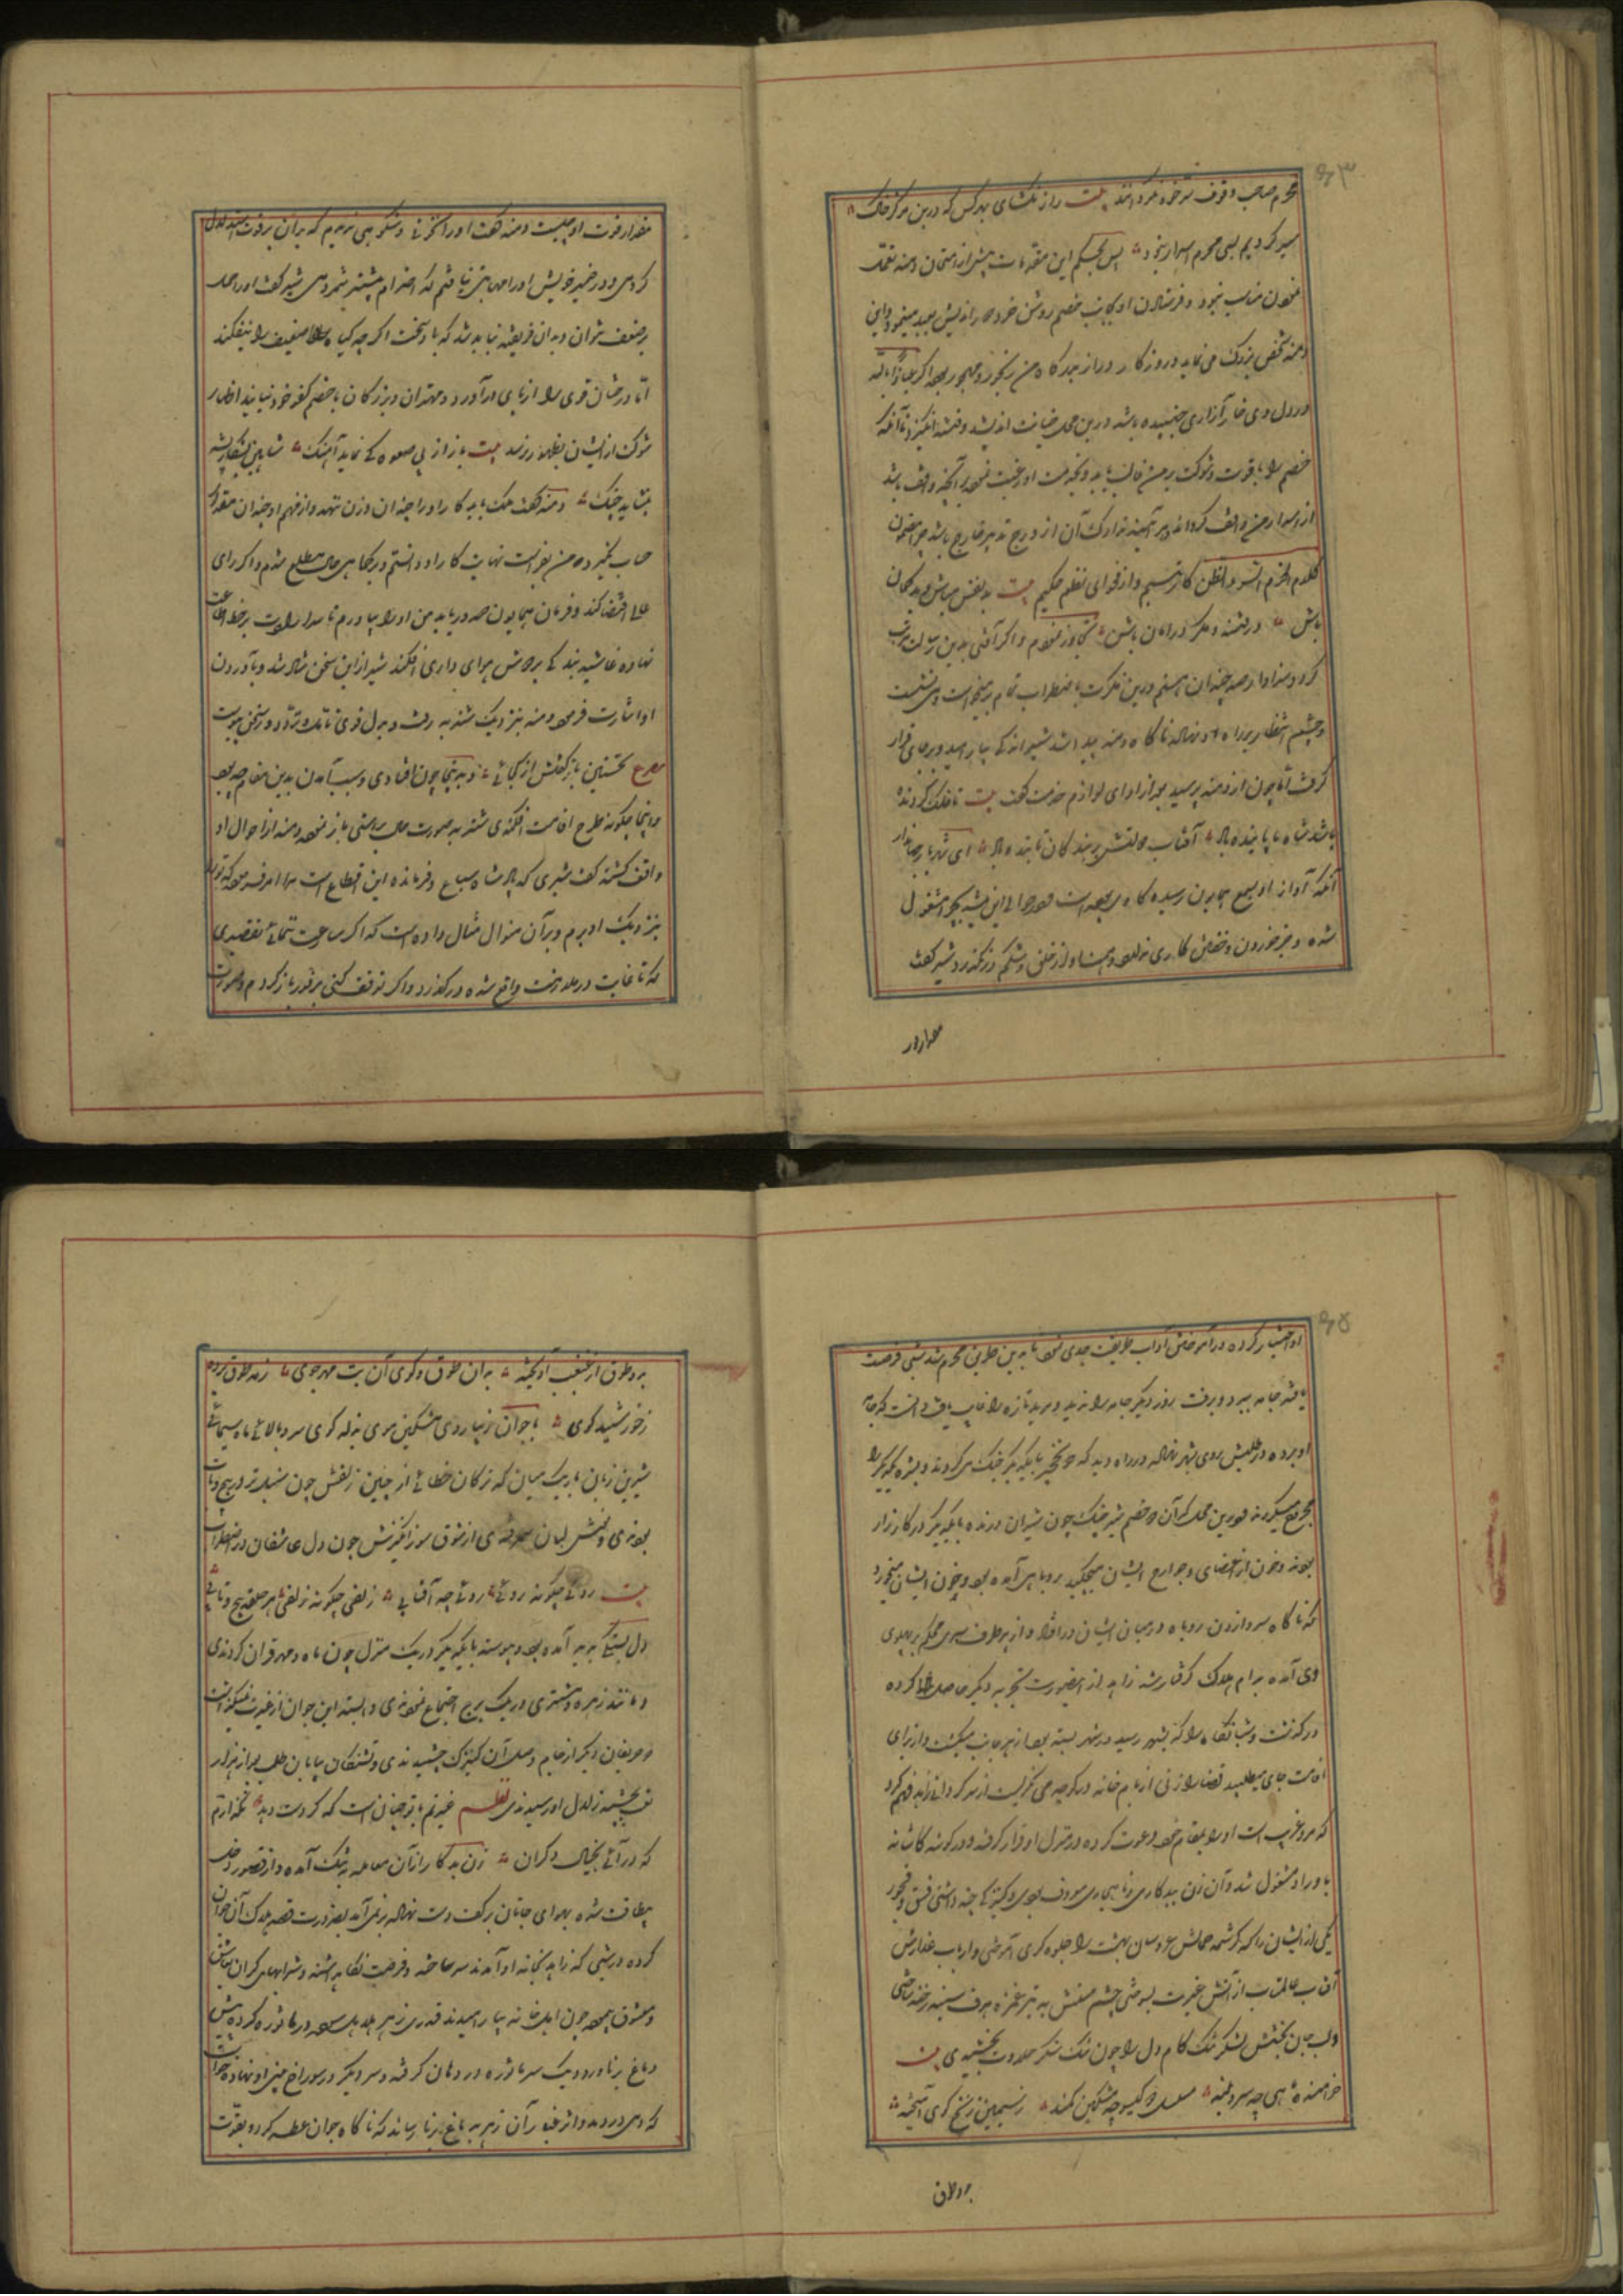 ۶۳
محرم صاحب وقوف سر خود نکردانند بیت راز نکشای بهر کس که درین مرکز خاک
سیر کردیم بسی محرم اسرار نبود پس بحکم این مقدمات پیش از امتحان دمنه تعقل
نمودن مناسب نبود و فرستادن او بجانب خصم روشن خرد دور اندیش بعید مینمود و این
دمنه شخص بزرک می نماید و روزکار دراز بر درکاه من رنجور و مهجور بوده اکر عیاذا بالله
در دل وی خار آزاری خلیده باشد درین محل خیانت اندیشد و فتنه انکیزد یا آنکه
خصم را بقوت و شوکت بر من غالب یابد و بخدمت او رغبت نموده بر آنچه واقف باشد
از اسرار من واقف کرداند و هر آینه تدارک آن از درج تدبیر خارج باشد چرا بمضمون
کلام الحزم سوء الظن کار نرسیم و از فحوای نظم حکیم بیت بدنفس مباش و بد کمان
باش در فتنه و مکر در امان باش تجاوز نمودم و اکر آفتی بدین رسالت مرتب
کردد سزاوار صد چندان هستم درین فکرت باضطراب تمام بر میخاست و می نشست
و چشم انتظار بر راه او نهاده ناکاه دمنه پیدا شد شیر اندکی بیارامید و بر جای قرار
کرفت اما چون از دمنه پرسید بعد از ادای لوازم خدمت کفت بیت تا فلک کردنده
باشد شاه ما پاینده باد آفتاب دولتش بر بندکان تابنده باد ای شهریار جهاندار
آنکه آواز او بسمع همایون رسیده کاوی بوده است در حوالی این بیشه بچرا مشغول
شده و جز خوردن و خفتن کاری ندارد و همت او از حلق و شکم در نکذرد شیر کفت
مقدار
مقدار قوت او چیست دمنه کفت او را نخوتی و شکوهی ندیدم که بران بر قوت استدلال
کردمی و در ضمیر خویش او را مهابتی نیافتم که احترام بیشتر شمردمی شیر کفت او را حمل
بر ضعف نتوان و بدان فریفته نباید شد که باد سخت اکر چه کیاه ضعیف را نیفکند
اما درختان قوی را از پای درآورد و مهتران و بزرکان تا خصم کفو خود نیابند اظهار
شوکت از ایشان بظهور نرسد بیت باز از پی صعوه کی نماید آهنک شاهین بشکار پشه
نکشاید چنک دمنه کفت ملک باید کار او را چندان وزن ننهد و از فهم او چندان مقدار
حساب نکیرد و من بفراست نهایت کار او دانستم و بر کماهی حال مطلع شدم و اکر رای
عالی اقتضا کند و فرمان همایون صدور یابد من او را بیاورم تا سر ارادت بر خط اطاعت
نهاده غاشیه بندکی بر دوش هواداری افکند شیر ازین سخن شاد شد و بآوردن
او اشارت فرمود دمنه بنزدیک شنزبه رفت و بدل قوی بی تأمل و تردد در سخن پیوست
مصرع نخستین باز کفتش از کجائی و بدینجا چون افتادی و سبب آمدن بدین مقام چه بود
و اینجا چکونه طرح اقامت افکندی شنزبه صورت حال براستی باز نمود دمنه از احوال او
واقف کشته کفت شیری که پادشاه سباع و فرمانده این اقطاع است مرا امر فرموده که ترا
بنزدیک او برم و بر آن منوال مثال داده است که اکر مسارعت نمائی تقصیری
که تا غایت در ملازمت واقع شده درکذرد و اکر توقف کنی بر فور باز کردم و صورت
۶۵
او اختیار کرده در آموختن آداب طریقت جدی نمود تا بدین طریق محرم شد شبی فرصت
یافته جامه ببرد و برفت روز دیکر جامه را ندید و مرید تازه را غایب یافت دانست که جامه
او برده در طلبش روی بشهر نهاد در راه دید که دو نخچیر با یکدیکر جنک می کردند و بسر یکدیکر را
مجروح میکردند درین محل که آن دو خصم تیز جنک چون شیران درنده با یکدیکر در کارزار
بودند و خون از اعضای و جوارح ایشان میچکید روباهی آمده بود و خون ایشان میخورد
که ناکاه در اثنای سر زدن روباه در میان ایشان درافتاد و از هر طرف سری محکم بر پهلوی
وی آمده بدام هلاک کرفتار شد زاهد از اینصورت تجربه دیکر حاصل کرده
در کذشت و شبانکاه را که بشهر رسید در شهر بسته بود از هر جانب میکشت و از برای
اقامت جای میطلبید قضا را زنی از بام خانه در کوچه می نکریست از سر کردانی زاهد فهم کرد
که مرد غریب است او را بمقام خود دعوت کرده در منزل او قرار کرفته و در کوشه کاشانه
باوراد مشغول شد و آن زن ببدکاری و ناهنجاری معروف بودی و کنیزکی چند داشتی فسق و فجور
یکی از ایشان را که کرشمه جمالش عروسان بهشت را جلوه کری آموختی و از تاب عذارش
آفتاب عالمتاب از آتش غیرت بسوختی چشم مستش به تیر غمزه هدف سینه رخنه ساختی
و لب جان بخشش بشکر تنک کام دل را چون تنک شکر حلاوت بخشیدی بیت
خرامنده ماهی چه سرو بلند مسلسل دو کیسو چو مشکین کمند ز سیمین زنخ کوی انکیخته
برو طوق
برو طوق از غبغب آویخته بدان طوق و کوی آن بت مهر جوی ز مه طوق برده
ز خورشید کوی با جوانی زیبا روی مشکین موی بذله کوی سرو بالائی ماه سیمائی
شیرین زبان باریک میان که ترکان خطائی از چین زلفش چون سنبل تر در پیچ و تاب
بودندی و نمکین لبان سمرقندی از شوق سوز انکیزش چون دل عاشقان در اضطراب
بیت روئی چکونه روئی روئی چه آفتابی زلفی چکونه زلفی هر حلقه پیچ و تابی
دل بستکی پدید آمده بود و پیوسته با یکدیکر در یک منزل چون ماه و مهر قران کردندی
و مانند زهره و مشتری در یک برج اجتماع نمودندی و البته این جوان از غیرت نمیکذاشت
که حریفان دیکر از جام وصل آن کنیزک چشیدندی و تشنکان بیابان طلب بعد از هزار
تعب بچشمه زلال او رسیدندی نظم غیرتم با تو چنان است که کر دست دهد نکذارم
که درآئی بخیال دکران زن بدکار از آن معامله به تنک آمده و از قصور دخل
بیطاقت شده بهوای جانان بر کف دست نهاده برنمی آمد بضرورت قصد هلاک آن جوان
کرده در شبی که زاهد بخانه او آمد تدبیر ساخته و فرصت نکاه داشته و شرابهای کران بعاشق
و معشوق پیموده چون اهل خانه بیارامیدند قدری زهر هلاهل سوده در ماشوره کرده پیش
دماغ برنا آورد و یک سر ماشوره در دهان کرفته و سر دیکر در سوراخ بینی او نهاده خواست
که دمی در دمد و اثر بخار آن زهر بدماغ برنا رساند که ناکاه جوان عطسه کرد و بقوت